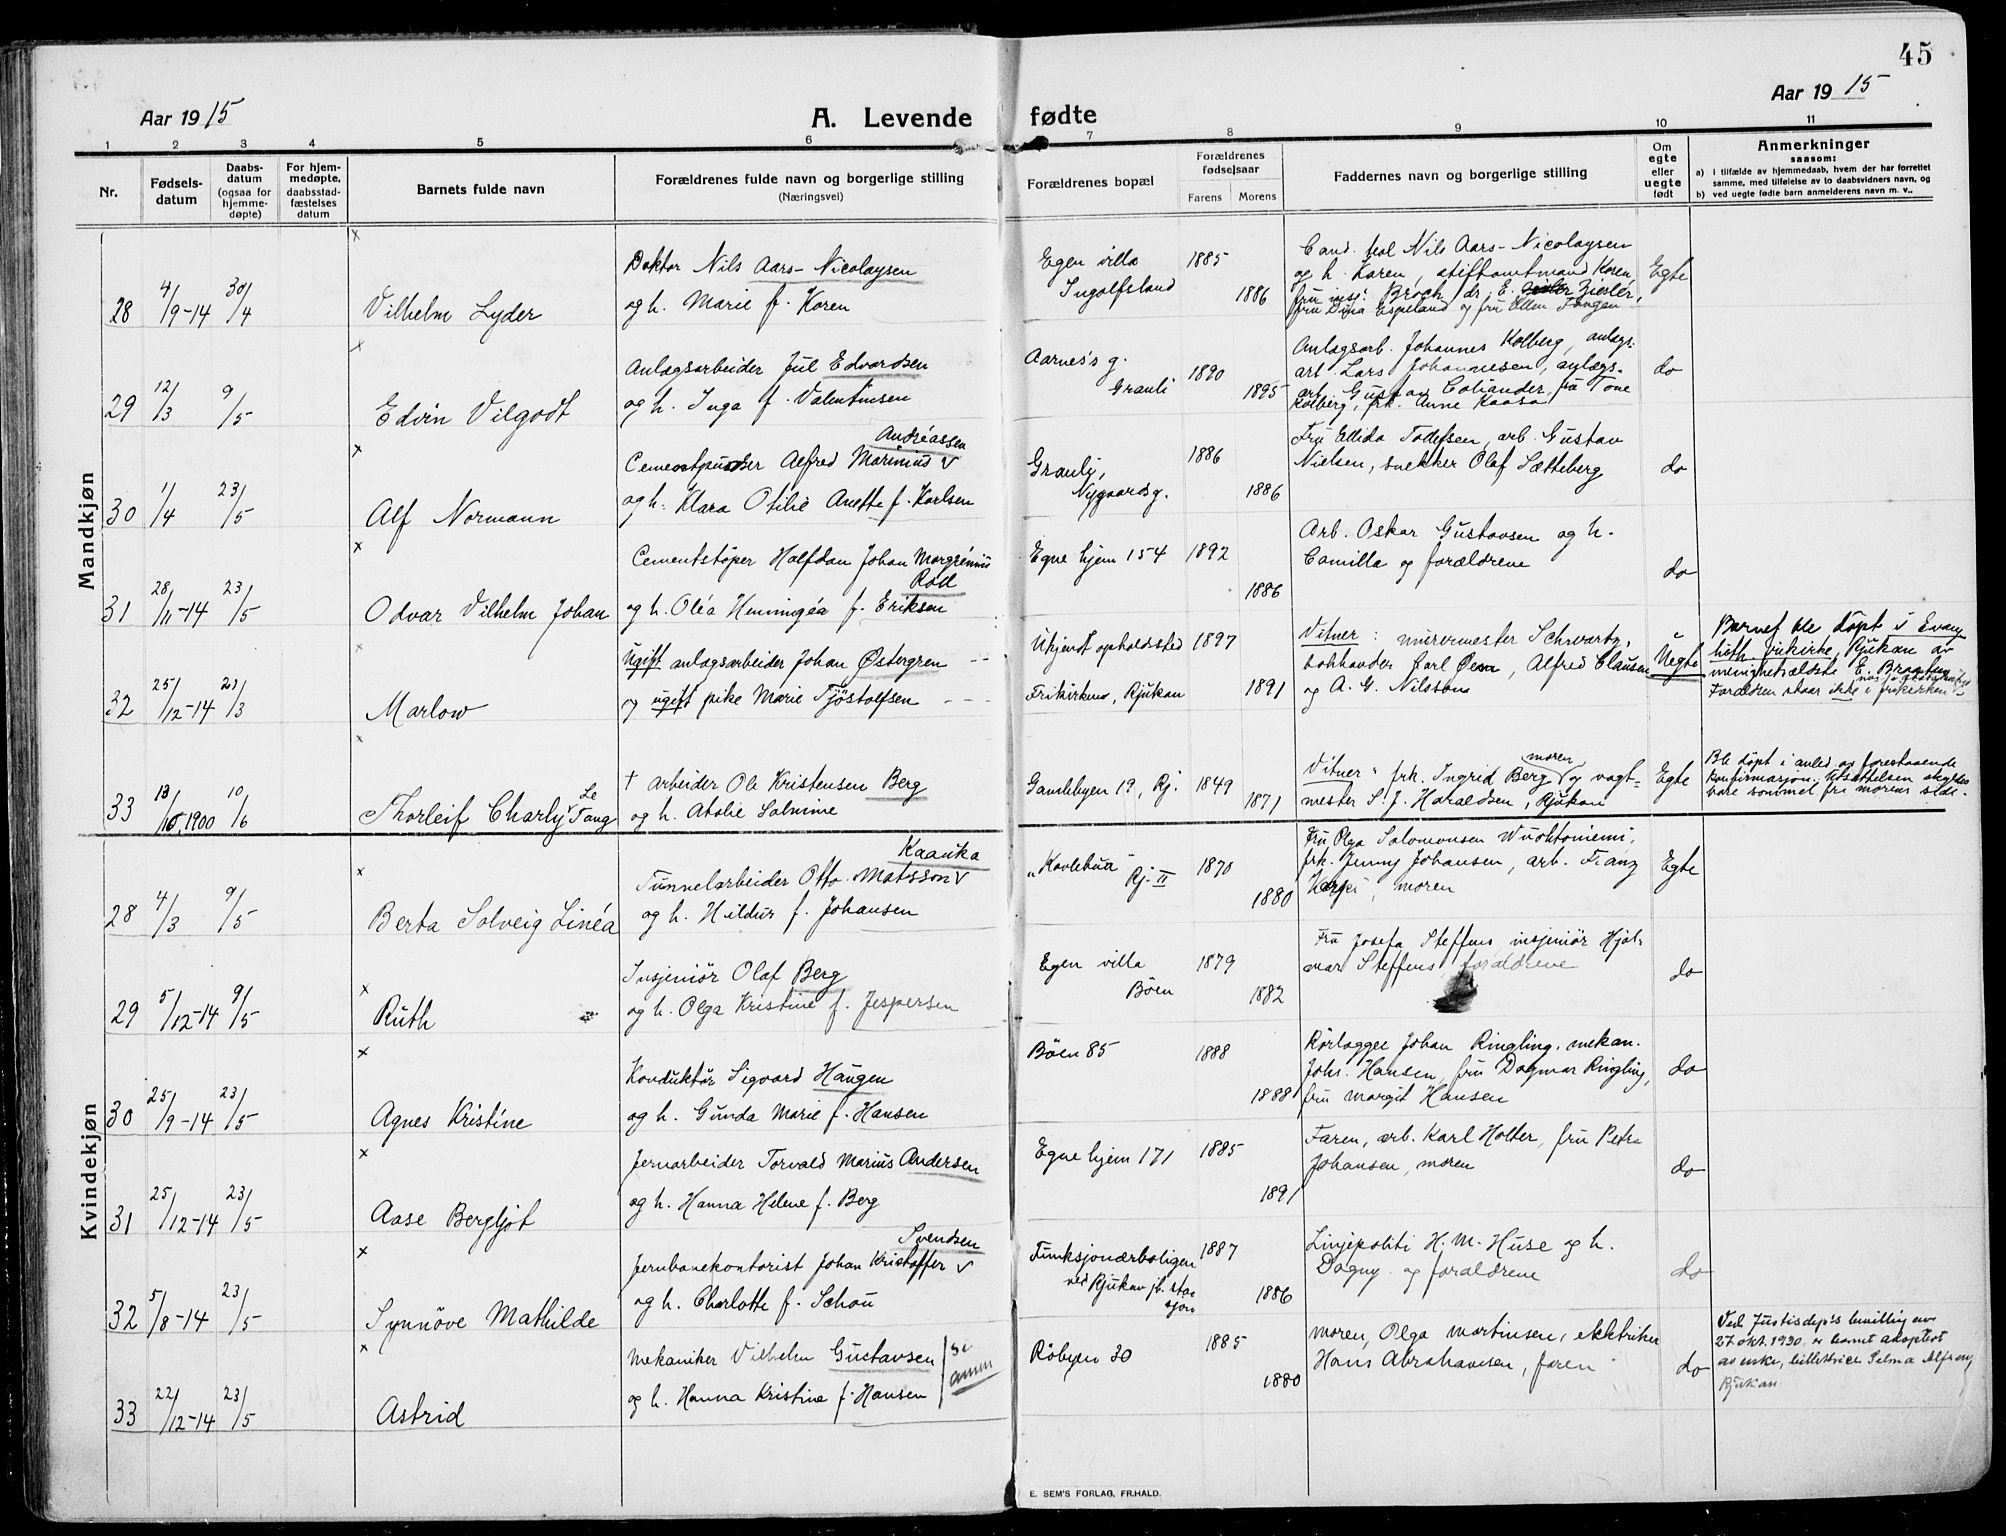 45
Aar 1915
A. Levende fødte
Aar 1915
1 2 3 4 5 6 7 8 9 10 11
Nr.
Fødsels-
datum
Daabs-
datum
(ogsaa for
hjemme-
døpte)
For hjem-
medøpte,
daabsstad-
fæstelses
datum
Barnets fulde navn
Forældrenes fulde navn og borgerlige stilling
(Næringsvei)
Forældrenes bopæl
Forældrenes
fødselsaar
Farens Morens
Faddernes navn og borgerlige stilling
Om
egte
eller
uegte
født
Anmerkninger
saasom:
a) i tilfælde av hjemmedaab, hvem der har forrettet
samme, med tilføielse av to daabsvidners navn, og
b) ved uegte fødte barn anmelderens navn m. v..
Mandkjøn
28 4/9-14 30/4 Vilhelm Lyder
Doktor Nils Aars-Nicolaysen
og h. Marie f. Koren
Egen villa
Ingolfsland
1885
1886
Cand. Nils Aars-Nicolaysen
og h. Karen, stiftamtmand Koren,
fru insp. Broch, dr. E. Ziesler,
fru Dina Espeland og fru Ellen Tangen
Egte
29 12/3 9/5 Edvin Vilgodt
Anlægsarbeider Jul Edvardsen
og h. Inga f. Valentinsen
Aarnes's g.
Granli
1890
1895
Anlægsarb. Johannes Kolberg, anlægs-
arb. Lars Johannesen, anlægs-
arb. Gustav Coliander, fru Tone
Kolberg, frk. Anne Kaasa
do
30 1/4 23/5 Alf Normann
Andréassen
Cementpusser Alfred Marinius v
og h. Klara Otilie Anette f. Karlsen
Granly,
Nygaards g.
1886
1886
Fru Ellida Tollefsen, arb. Gustav
Nielsen, snekker Olaf Sætteberg
do
31 28/11-14 23/5 Odvar Vilhelm Johan
Cementstøper Halfdan Johan Margrénius
Roll
og h. Oléa Henningéa f. Eriksen
Egne hjem 154
1892
1886
Arb. Oskar Gustavsen og h.
Camilla og forældrene
do
32 25/12-14 21/3 Marlow
Ugift anlægsarbeider Johan Østergren
og ugift pike Marie Tjøstolfsen
Ukjendt opholdssted
Frikirken, Rjukan
1897
1891
Vitner: murermester Schwartz,
bokhandler Karl Øen, Alfred Clausen
og A. G. Nilsson
Uegte
Barnet ble døpt i Evang.
luth. frikirke, Rjukan av
menighetsældste E. Braaten
Forældren staar ikke i frikirken
33 13/10, 1900 10/6 Thorleif Charly Le Tang
† arbeider Ole Kristensen Berg
og h. Atolie Salmine
Gamlebyen 19, Rj.
1849
1871
Vitner: frk. Ingrid Berg, moren og vagt-
mester S. J. Haraldsen, Rjukan
Egte
Ble døpt i anled. og forestaaende
konfirmasjon. Utsættelsen skyldes
bare sommel fra morens side.
Kvindekjøn
28 4/3 9/5 Berta Solveig Linéa
Kaauka
Tunnelarbeider Otto Matsson v
og h. Hildur f. Johansen
"Kavlebua"
Rj. II
1870
1880
Fru Olga Salomonsen Wuoktoniemi,
frk. Jenny Johansen, arb. Franz
moren
Egte
29 5/12-14 9/5 Ruth
Insjeniør Olaf Berg
og h. Olga Kristine f. Jespersen
Egen villa
Bøen
1879
1882
Fru Josefa Steffens, insjeniør Hjal-
mar Steffens, forældrene
do
30 25/9-14 23/5 Agnes Kristine
Konduktør Sigvard Haugen
og h. Gunda Marie f. Hansen
Bøen 85
1888
1888
Rørlægger Johan Ringling, mekan.
Johs. Hansen, fru Dagmar Ringling,
fru Margit Hansen
do
31 25/12-14 23/5 Aase Bergljot
Jernarbeider Torvald Marius Andersen
og h. Hanna Helene f. Berg
Egne hjem 171
1885
1891
Faren, arb. Karl Holter, fru Petra
Johansen, moren
do
32 5/8-14 23/5 Synnöve Mathilde
Svendsen
Jernbanekontorist Johan Kristoffer v
og h. Charlotte f. Schou
Funksjonærboligen
ved Rjukan jb. sta-
sjon
1887
1886
Linjepoliti H. M. Huse og h.
Dagny og forældrene
do
33 22/12-14 23/5 Astrid
Mekaniker Vilhelm Gustavsen
og h. Hanna Kristine f. Hansen
se
anm
Røbyen 30
1885
1880
Moren, Olga Martinsen, elektriker
Hans Abrahamsen, faren
do
Ved Justisdep's bevilling av
27. okt. 1930 er barnet adoptert
av enke, Selma
Rjukan
E. SEM'S FORLAG, FR.HALD.